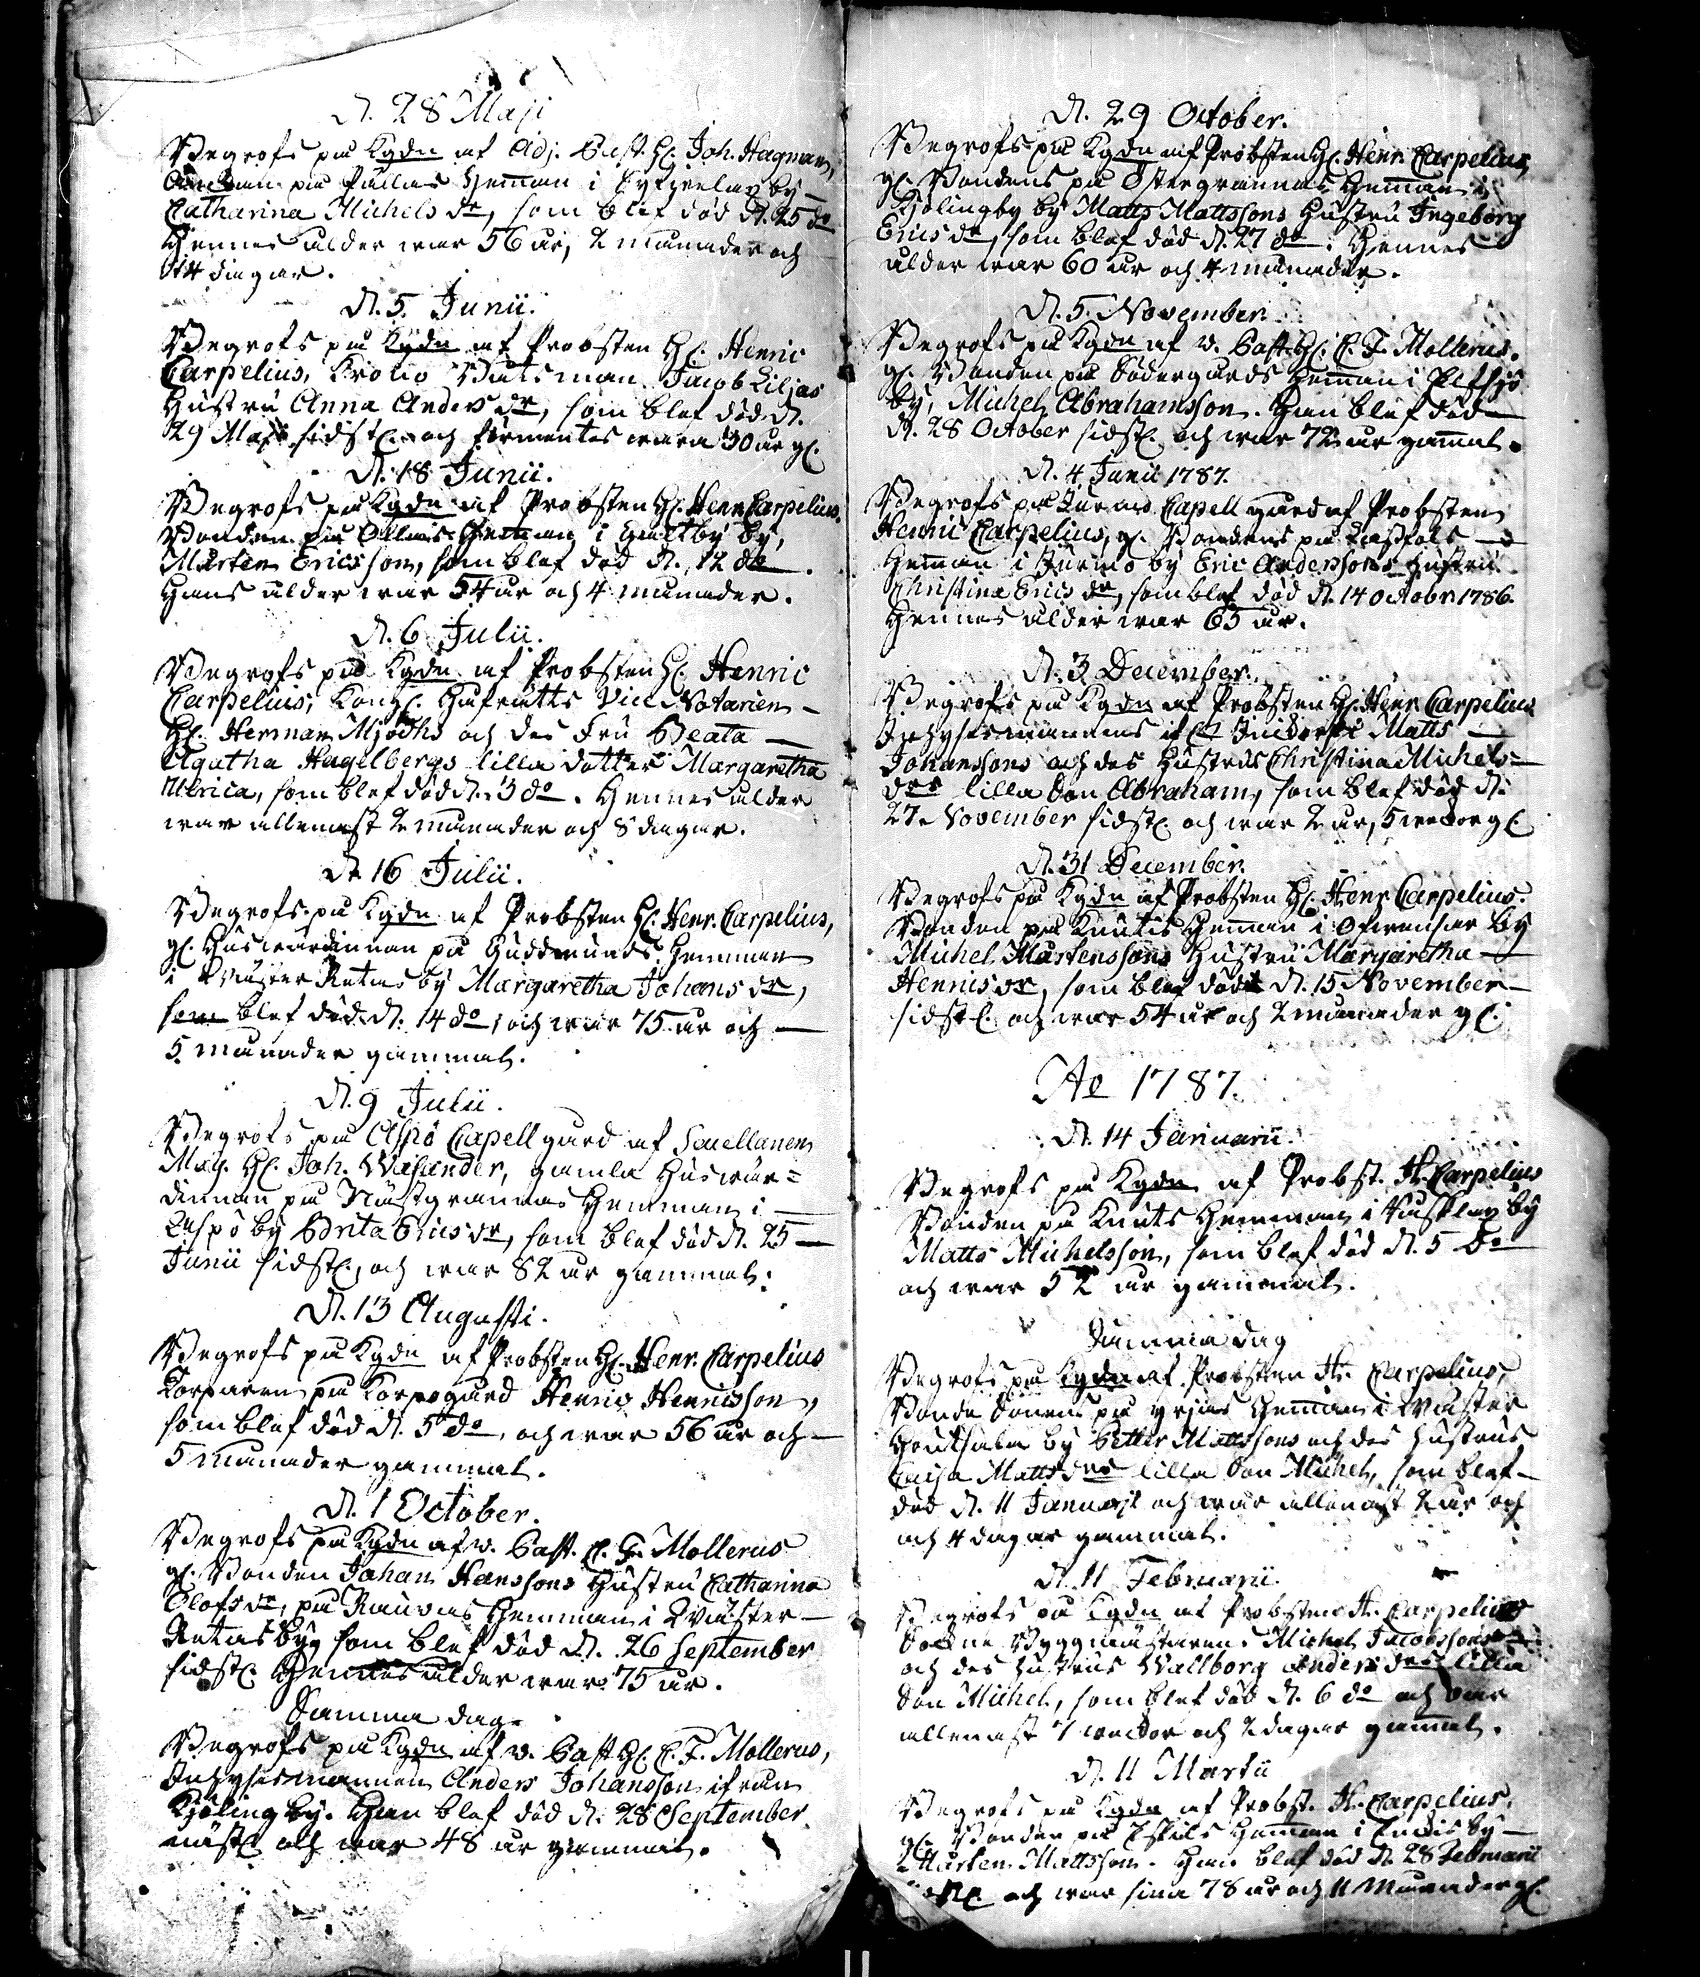 D. 28 Maji
Begrofs på Kgdn af Adj. Past. H. Joh. Hagman,
Enckan på Pällas Heman i by
Catharina Michels dr, som blef död d. 25 do
Hennes ålder war 56 år, 2 månader och
14 dagar.
D. 5. Junii.
Begrofs på Kgdn af Probsten H. Henric
Carpelius, Krono Båtsman Jacob Liljas
Hustru Anna Anders dr, som blef död d.
29 Maji sidstl. och förmentes wara 30 år gl.
D. 18 Junii.
Begrofs på Kgdn af Probsten H. Henr. Carpelius.
Bonden på Ollas Heman i by,
Mårten Ericsson, som blef död d. 12 do.
Hans ålder war 54 år och 4 månader.
D. 6 Julii.
Begrofs på Kgdn af Probsten H. Henric
Carpelius, Kongl. Håfrätts Vice Notarien
H. Herman Mjödhs och des Fru Beata
Agatha Hagelbergs lilla dotter Margaretha
Ulrica, som blef död d. 3 do. Hennes ålder
war allenast 2 månader och 8 dagar.
D. 16 Julii.
Begrofs på Kgdn af Probsten H. Henr. Carpelius,
gl. Huswärdinnan på Guddmunds Hemman
i Wäster Retais by Margaretha Johans dr,
som blef död d. 14 do, och war 75 år och
5 månader gammal.
D. 9 Julii.
Begrofs på Aspö Capell gård af Sacellanen
Mag. H. Joh. Wasander, gamla Huswär=
dinnan på Nästgrannas Hemman i
Aspö by Brita Erics dr, som blef död d. 25
Junii sidstl., och war 82 år gammal.
D. 13 Augusti.
Begrofs på Kgdn af Probsten H. Henr. Carpelius
Torparen på Korpogård Henric Henricsson,
som blef död d. 5 do, och war 56 år och
5 månader gammal.
D. 1 October.
Begrofs på Kgdn af v. Past. C. F. Mollerus
gl. Bonden Johan Hanssons Hustru Catharina
Olofs dr, på Rauvas Hemman i Wäster
Retais by som blef död d. 26 September
sidstl. Hennes ålder war 75 år.
Samma dag.
Begrofs på Kgdn af v. Past H. C. F. Mollerus,
Inhysesmannen Anders Johansson ifrån
Kjölingby. Han blef död d. 28 September
nästl. och war 48 år gammal.
D. 29 October.
Begrofs på Kgdn af Probsten H. Henr. Carpelius,
gl. Bondens på Östergrannas Heman i
Kjölingby by Matts Mattssons Hustru Ingeborg
Erics dr, som blef död d. 27 do. Hennes
ålder war 60 år och 4 månader.
D. 5. November.
Begrofs på Kgdn af v. Past. H. C. F. Mollerus.
gl. Bonden på Södergårds Heman i
by, Michel Abrahamsson. Han blef död
d. 28 October sidstl. och war 72 år gamal.
D. 4 Junii 1787.
Begrofs på Jurmo Capell gård af Probsten
Henric Carpelius, gl. Bondens på
Heman i Jurmo by Eric Anderssons Hustru
Christina Erics dr, som blef död d. 14 Octobr 1786.
Hennes ålder war 65 år.
D. 3 December.
Begrofs på Kgdn af Probsten H. Henr. Carpelius
Inhysesmannens Matts
Johanssons och des Hustrus Christina Michels=
drs lilla Son Abraham, som blef död d.
27. November sidstl. och war 2 år, 5 weckor gl.
D. 31 December.
Begrofs på Kgdn af Probsten H. Henr. Carpelius.
Bonden på Knutis Heman i by
Michel Mårtenssons Hustru Margaretha
Henrics dr, som blef död d. 15 November
sidstl. och war 54 år och 2 månader gl.
Ao 1787.
D. 14 Januarii.
Begrofs på Kgdn af Probst. H. Carpelius
Bonden på Knuts Hemman i by
Matts Michelsson, som blef död d. 5 Do
och war 52 år gammal.
Samma dag
Begrofs på Kgdn af Probsten H. Carpelius,
Bonde Sonens på Heman i Wäster
by Petter Mattssons och des Hustrus
Caisa Matts drs lilla Son Michel, som blef
död d. 11 Januarii och war allenast 2 år och
och 4 dagar gammal.
D. 11 Februarii.
Begrofs på Kgdn af Probsten H. Carpelius
Sockne Byggmästaren Michel Jacobssons
och des Hustrus Wallborg Anders drs lilla
Son Michel, som blef död d. 6 do och war
allenast 7 weckor och 2 dagar gammal.
D. 11 Martii
Begrofs på Kgdn af Probst. H. Carpelius.
gl. Bonden på Eskils Heman i by
Mårten Mattsson. Han blef död d. 28 Februarii
och war sina 78 år och 11 Månader gl.